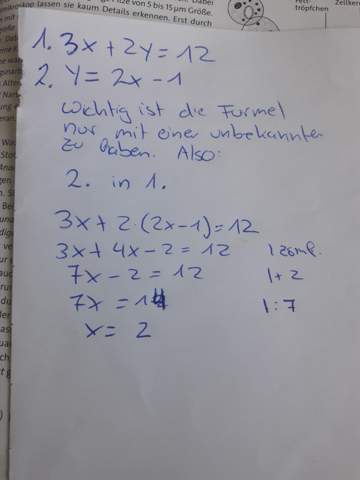 lioskop lassen sie kaum Details erkennen. Erst durch
tröpfchen
Zellkern
1. 3x + 2y = 12
2. y = 2x - 1
Wichtig ist die Formel
nur mit einer unbekannten
zu haben. Also:
2. in 1.
3x + 2·(2x-1) = 12
3x + 4x - 2 = 12 | zsml.
7x - 2 = 12 | + 2
7x = 14 | : 7
x = 2